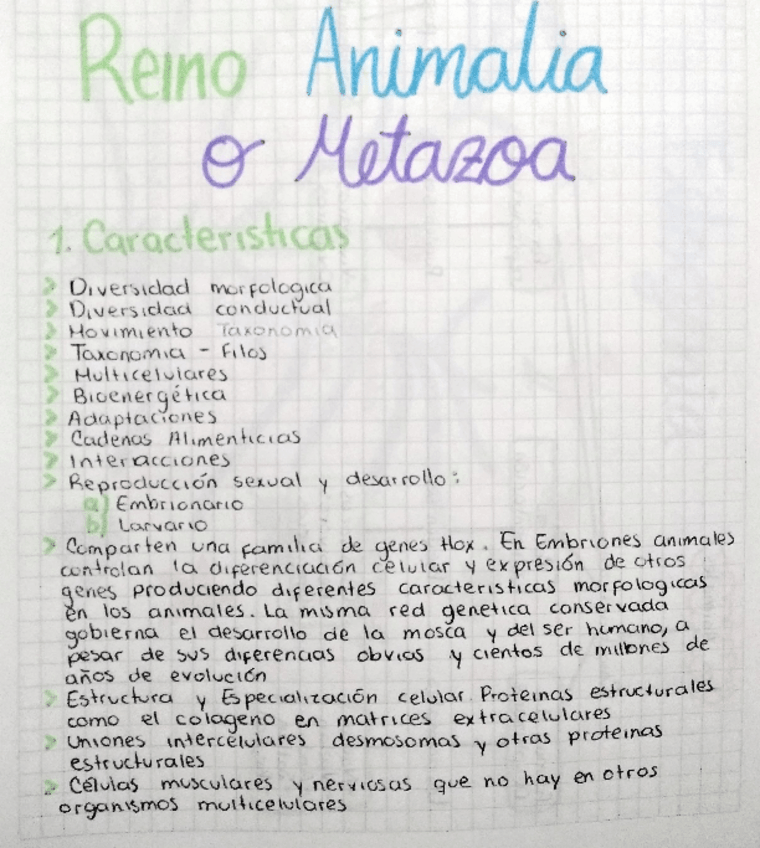 Reino Animalia
o Metazoa
1. Caracteristicas
> Diversidad morfologica
> Diversidad conductual
> Movimiento Taxonomia
> Taxonomia - Filos
> Multicelulares
> Bioenergética
> Adaptaciones
> Cadenas Alimenticias
> Interacciones
> Reproducción sexual y desarrollo:
a) Embrionario
b) Larvario
> Comparten una familia de genes Hox. En Embriones animales
controlan la diferenciación celular y expresión de otros
genes produciendo diferentes caracteristicas morfologicas
en los animales. La misma red genetica conservada
gobierna el desarrollo de la mosca y del ser humano, a
pesar de sus diferencias obvias y cientos de millones de
años de evolución
> Estructura y Especialización celular. Proteinas estructurales
como el colageno en matrices extracelulares
> Uniones intercelulares desmosomas y otras proteinas
estructurales
> Células musculares y nerviosas que no hay en otros
organismos multicelulares